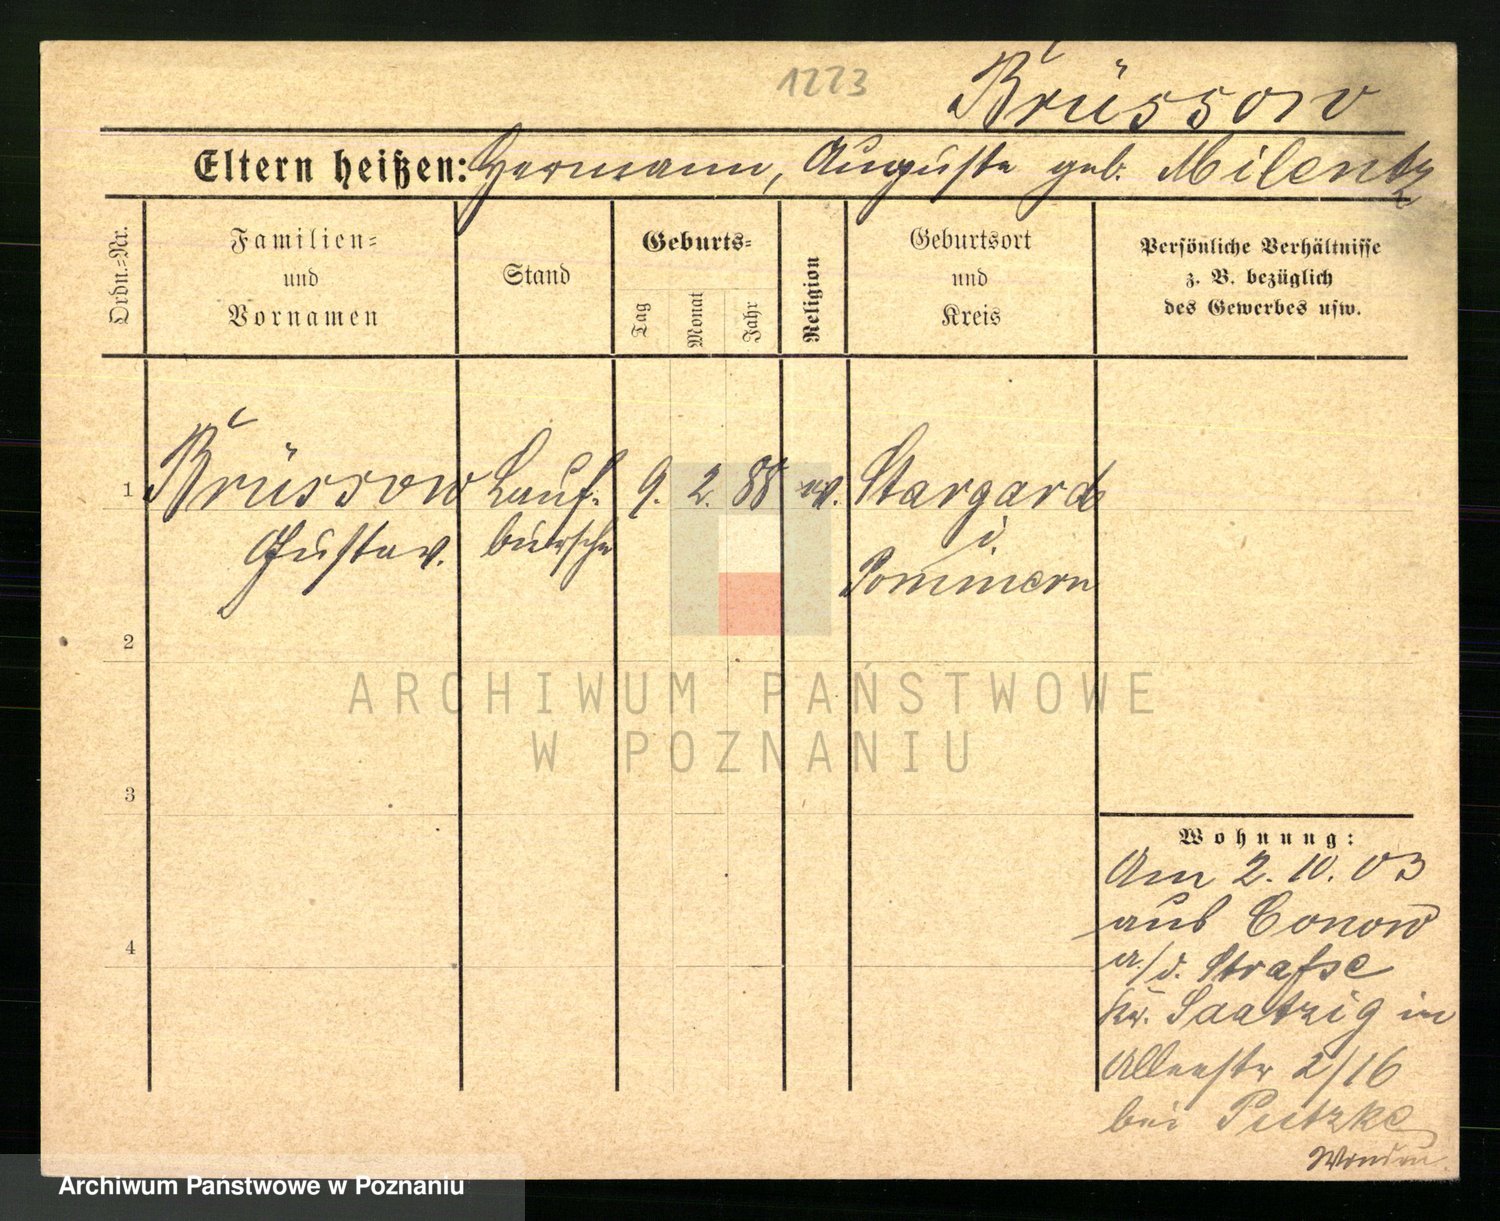 1223
Brüssow
Eltern heißen: Hermann, Auguste geb. Milentz
Ordn.-Nr.
Familien-
und
Vornamen
Stand
Geburts-
Tag
Monat
Jahr
Religion
Geburtsort
und
Kreis
Persönliche Verhältnisse
z. B. bezüglich
des Gewerbes usw.
1 Brüssow Lauf- 9. 2. 88 ev. Stargard
Gustav. bursche i.
Pommern
2
ARCHIWUM PAŃSTWOWE
W POZNANIU
3
Wohnung:
Am 2. 10. 03
aus Conow
a./d. Strafse
Kr. Saatzig in
Alleestr 2/16
bei Putzke
4
Archiwum Państwowe w Poznaniu